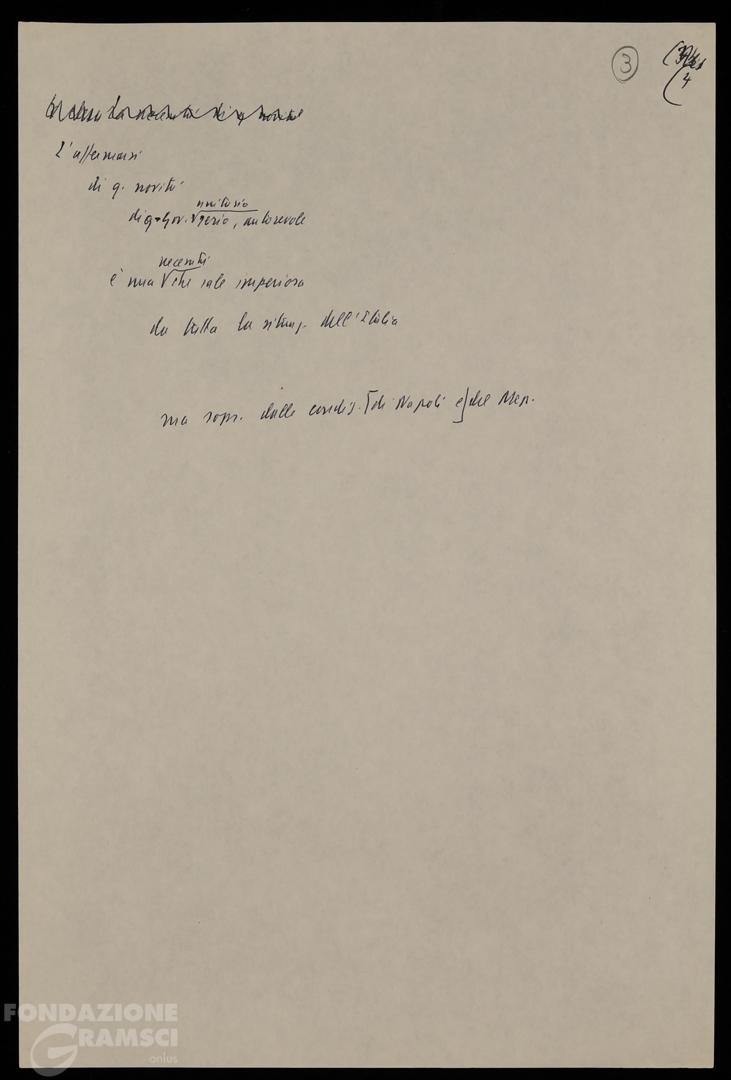 3
4
L'affermarsi
di q. novità
unitario
di q. gov. serio, autorevole
necessità
è una che sale imperiosa
da tutta la situaz. dell'Italia
ma sopr. dalle condiz. [di Napoli e] del Mezz.
FONDAZIONE
GRAMSCI
onlus